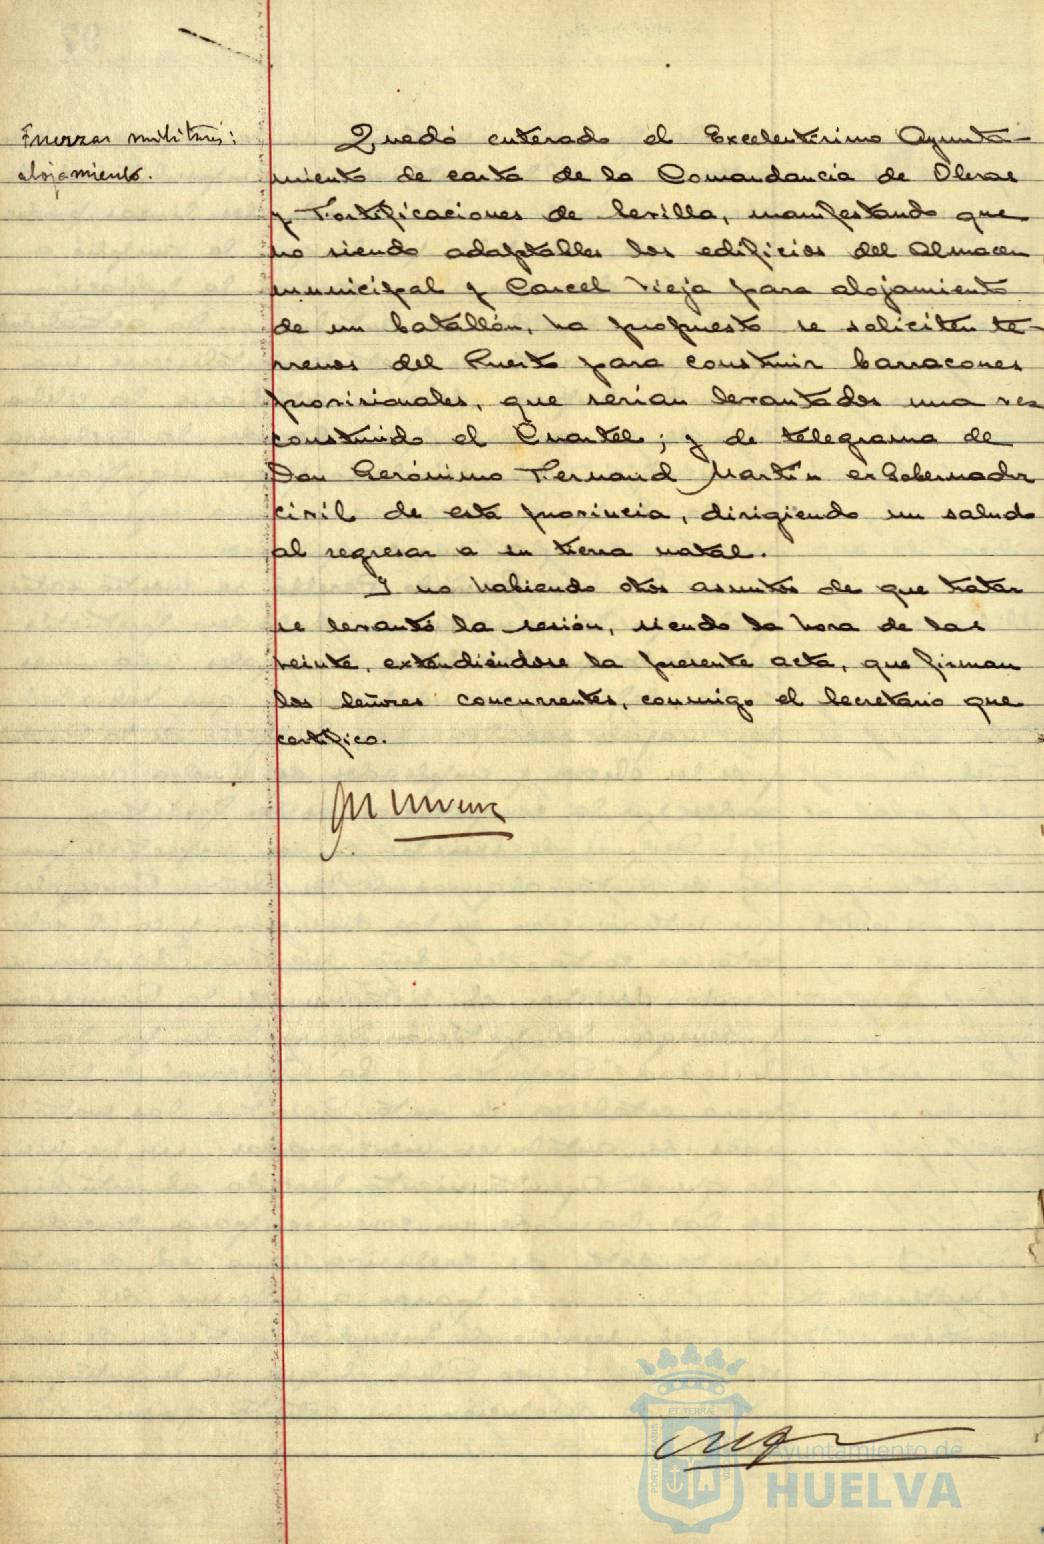 Fuerzas militares:
alojamiento.
Quedó enterado el Excelentísimo Ayunta-
miento de carta de la Comandancia de Obras
y Fortificaciones de Sevilla, manifestando que
no siendo adaptables los edificios del Almacen
municipal y Carcel Vieja para alojamiento
de un batallón, ha propuesto se soliciten te-
rrenos del Puerto para construir barracones
provisionales, que serian levantados una vez
construido el Cuartel; y de telegrama de
Don Gerónimo Fernaud Martín exGobernador
civil de esta provincia, dirigiendo un saludo
al regresar a su tierra natal.
Y no habiendo otros asuntos de que tratar
se levantó la sesión, siendo la hora de las
veinte, extendiéndose la presente acta, que firman
los Señores concurrentes, conmigo el Secretario que
certifico.
Ayuntamiento de
HUELVA